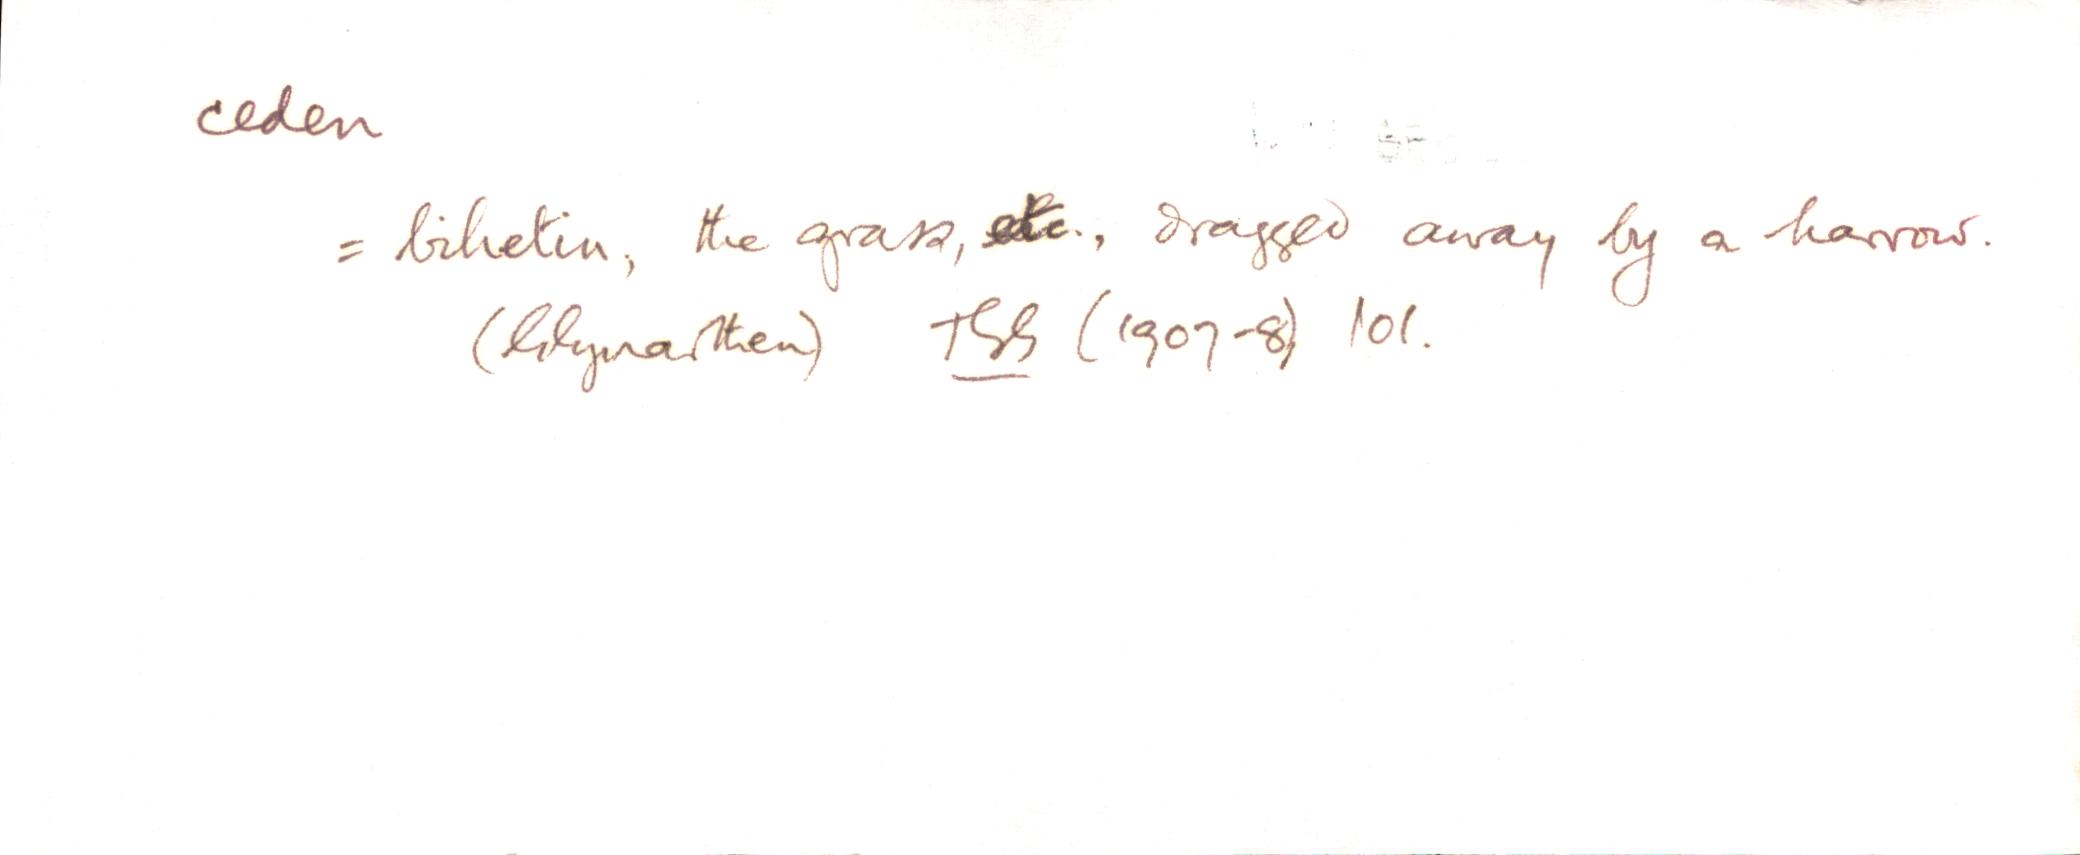 ceden
= bihetin, the grass, etc., dragged away by a harrow.
(Glynarthen) TGG (1907-8) 101.